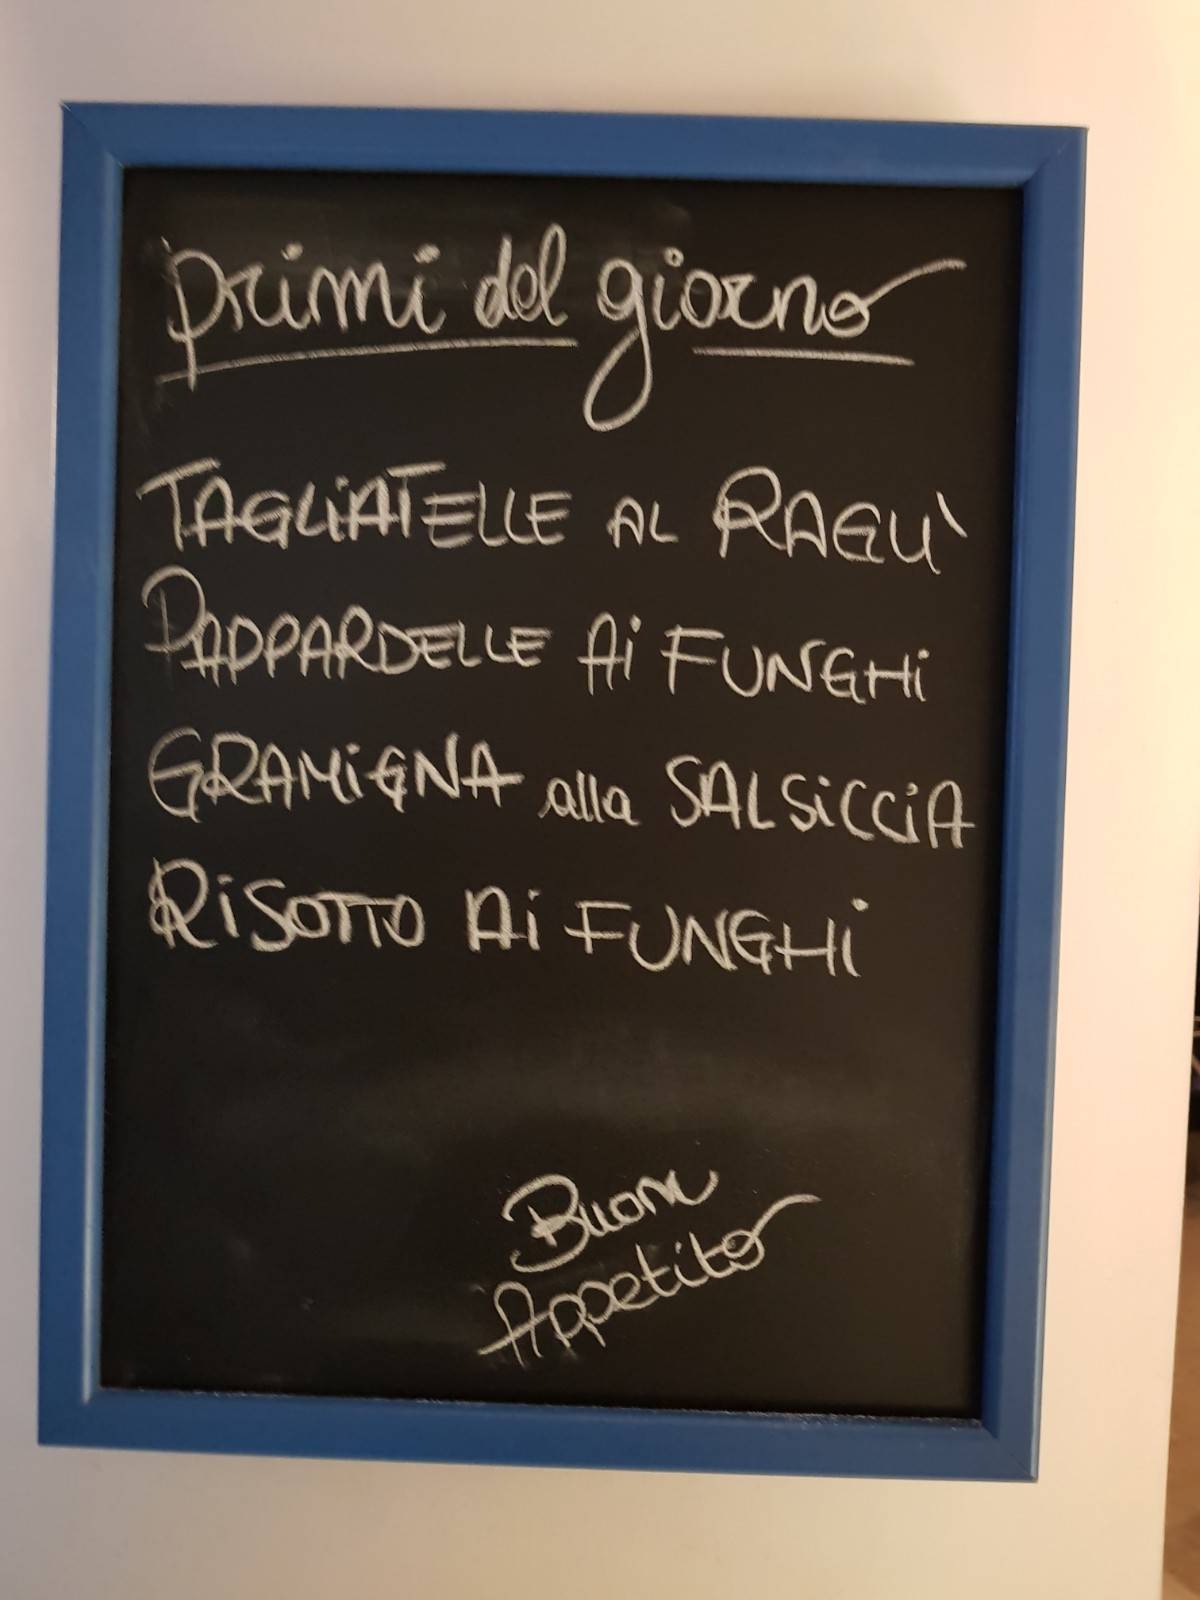 primi del giorno
TAGLiATELLE AL RAGU'
PAPPARDELLE Ai FUNGHi
GRAMiGNA alla SALSiCCiA
RiSOTTO Ai FUNGHi
Buon
Appetito